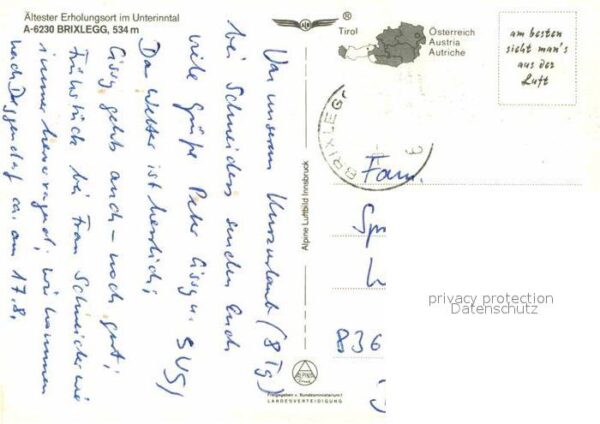 Ältester Erholungsort im Unterinntal
A-6230 BRIXLEGG, 534 m
Von unserem Kurzurlaub (8 Tg)
bei Schneiders senden Euch
viele Grüße Peter Cissy u. SUS/
Das Wetter ist herrlich;
Cissy gehts auch - noch gut;
Frühstück bei Frau Schneider wie
immer hervorragend; wir kommen
nach Deggendorf ca. am 17.8.
®
Tirol
Österreich
Austria
Autriche
am besten
sieht man's
aus der
Luft
BRIXLEGG
Fam.
Sp
836
Alpine Luftbild Innsbruck
ALPINE
Freigegeben v. Bundesministerium f.
LANDESVERTEIDIGUNG
privacy protection
Datenschutz